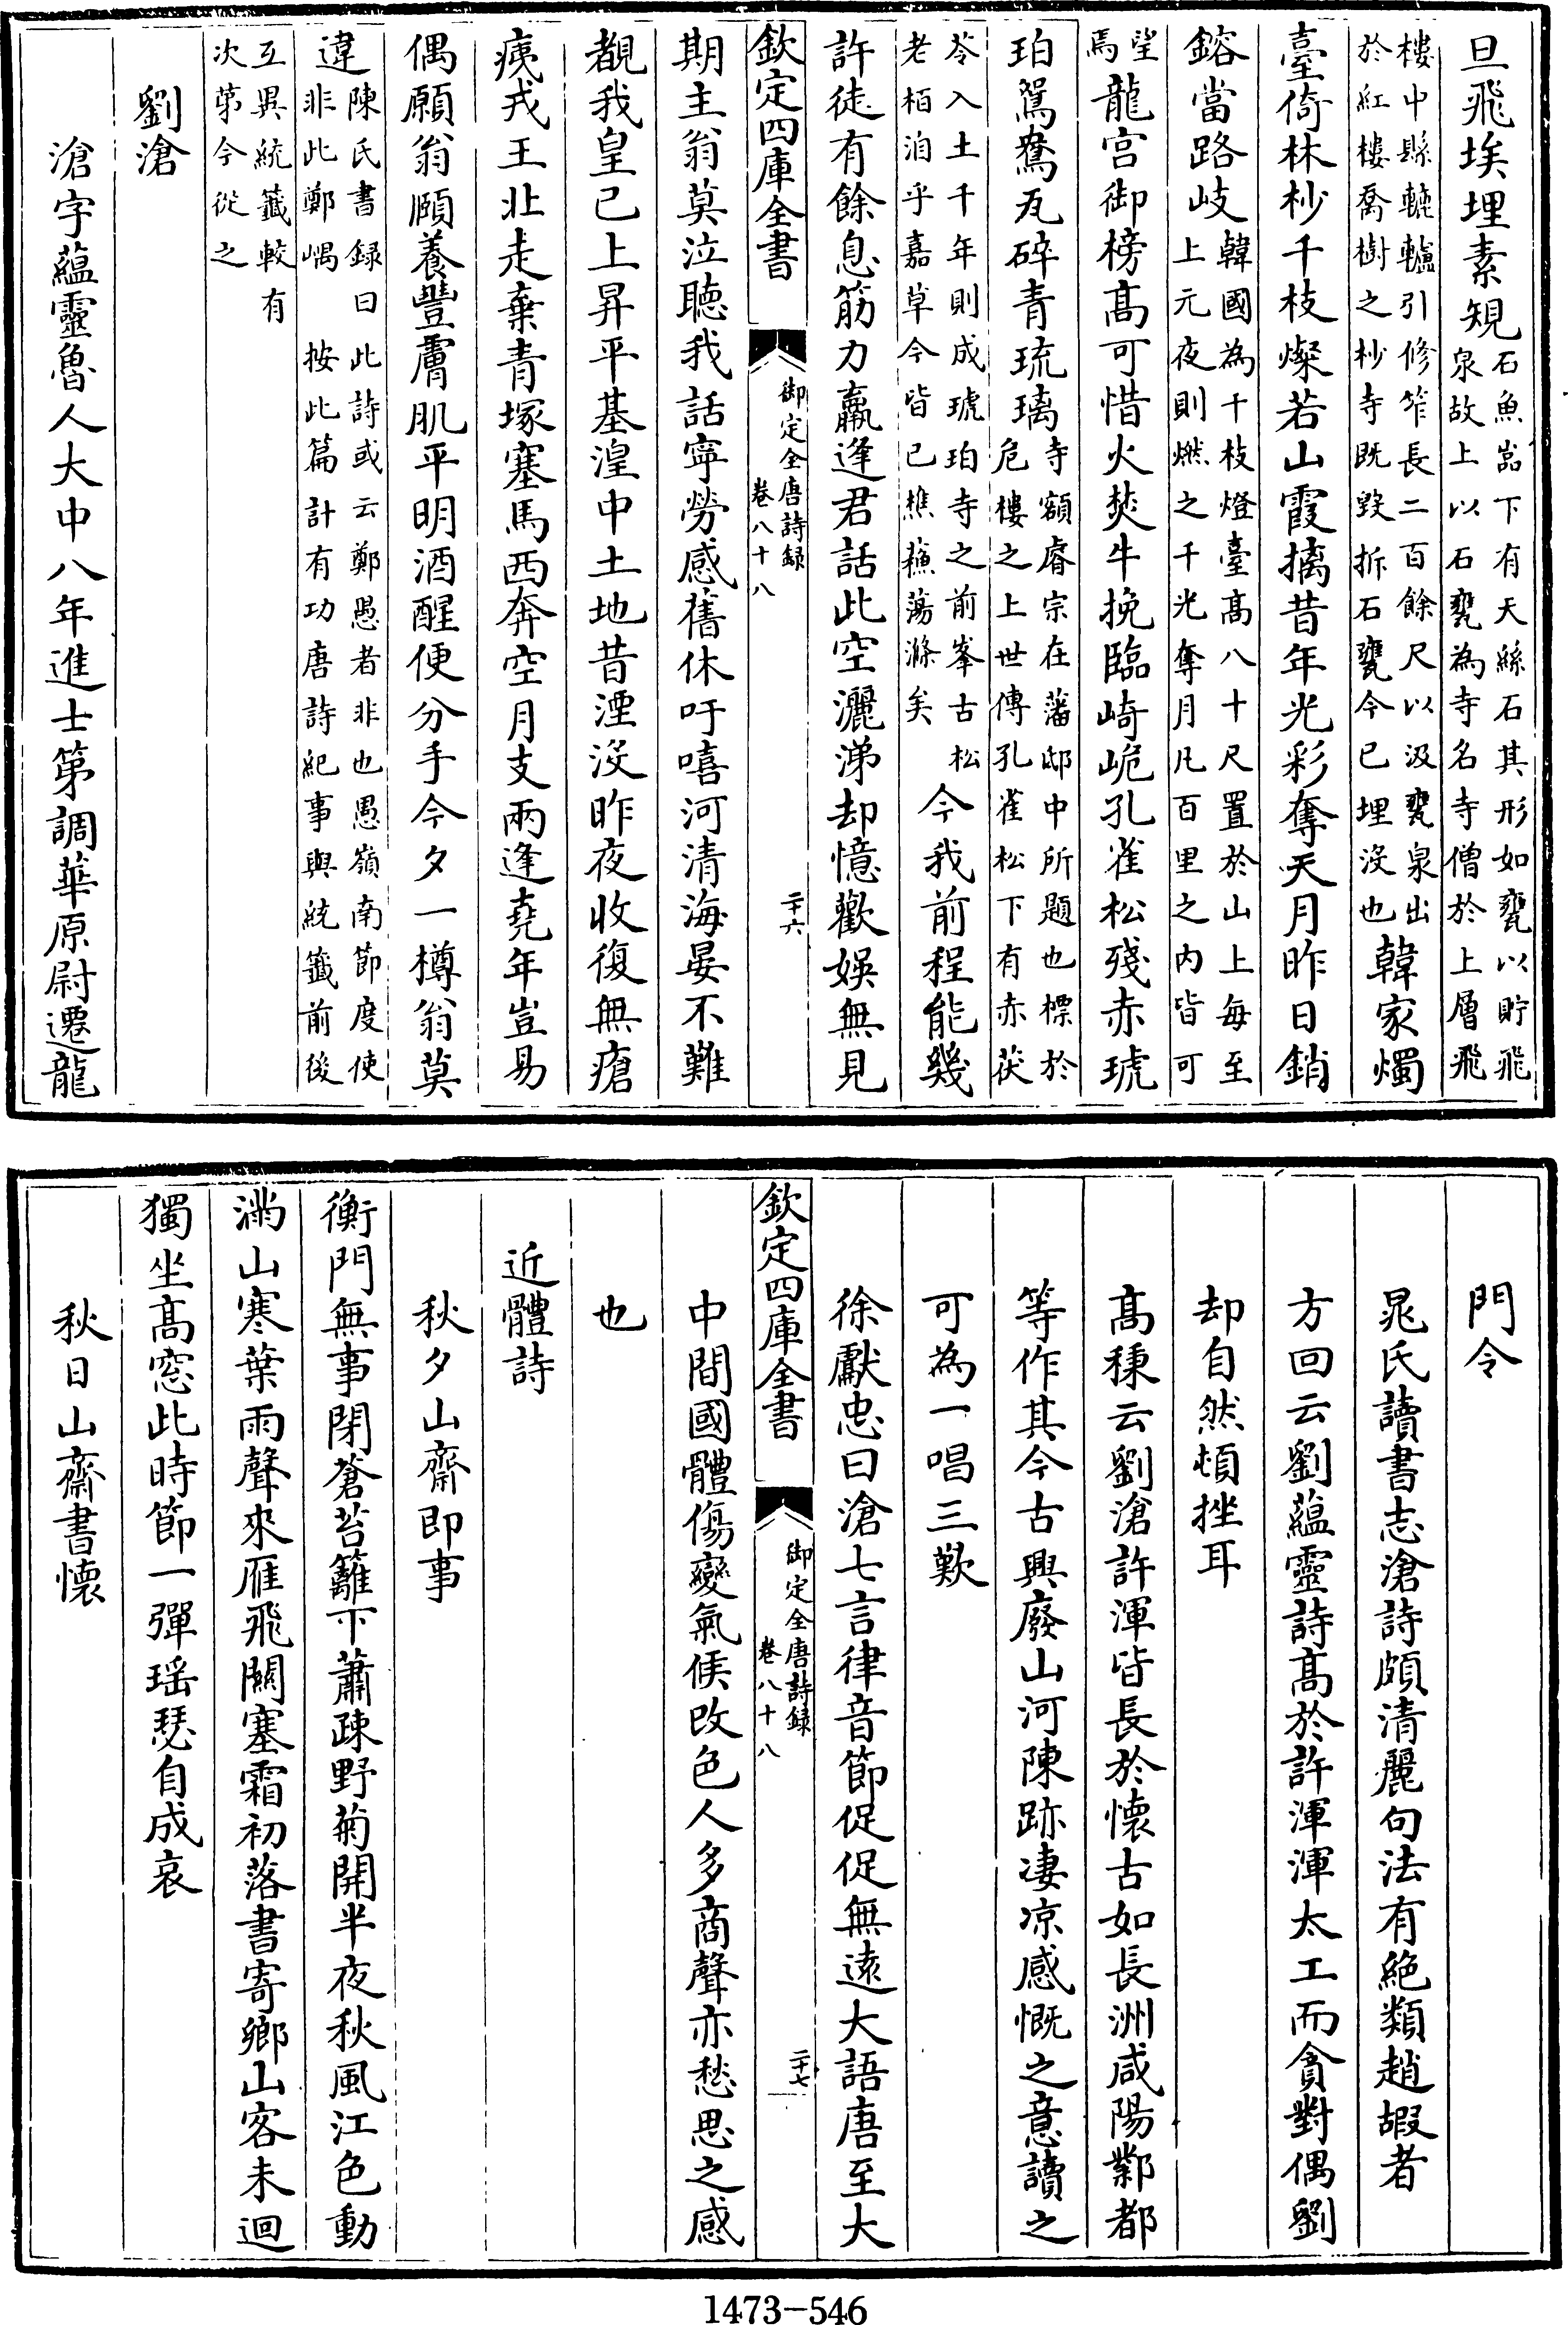 旦飛埃埋素規石魚嵓下有天絲石其形如甕以貯飛
泉故上以石甕為寺名寺僧於上層飛
樓中縣轆轤引修笮長二百餘尺以汲甕泉出
於紅樓喬樹之杪寺既毀拆石甕今已埋沒也韓家燭
臺倚林杪千枝燦若山霞摛昔年光彩奪天月昨日銷
鎔當路岐韓國為千枝燈臺髙八十尺置於山上每至
上元夜則燃之千光奪月凡百里之内皆可
望
焉龍宫御榜髙可惜火焚牛挽臨崎峗孔雀松殘赤琥
珀鴛鴦瓦碎青琉璃寺額睿宗在藩邸中所題也標於
危樓之上世傳孔雀松下有赤茯
苓入土千年則成琥珀寺之前峯古松
老栢洎乎嘉草今皆已樵蘓蕩滌矣今我前程能幾
許徒有餘息筋力羸逢君話此空灑涕却憶歡娛無見
欽定四庫全書
御定全唐詩録
卷八十八
二十六
期主翁莫泣聽我話寧勞感舊休吁嘻河清海晏不難
覩我皇已上昇平基湟中土地昔湮沒昨夜收復無瘡
痍戎王北走棄青塚塞馬西奔空月支兩逢堯年豈易
偶願翁頤養豐膚肌平明酒醒便分手今夕一樽翁莫
違陳氏書録曰此詩或云鄭愚者非也愚嶺南節度使
非此鄭嵎 按此篇計有功唐詩紀事與統籤前後
互異統籤較有
次第今從之
劉滄
滄字蘊靈魯人大中八年進士第調華原尉遷龍
門令
晁氏讀書志滄詩頗清麗句法有絶類趙嘏者
方回云劉蘊靈詩髙於許渾渾太工而貪對偶劉
却自然頓挫耳
髙棅云劉滄許渾皆長於懷古如長洲咸陽鄴都
等作其今古興廢山河陳跡凄凉感慨之意讀之
可為一唱三歎
徐獻忠曰滄七言律音節促促無遠大語唐至大
欽定四庫全書
御定全唐詩録
卷八十八
二十七
中間國體傷變氣候改色人多商聲亦愁思之感
也
近體詩
秋夕山齋即事
衡門無事閉蒼苔籬下蕭疎野菊開半夜秋風江色動
滿山寒葉雨聲來雁飛關塞霜初落書寄鄉山客未迴
獨坐髙窓此時節一彈瑶瑟自成哀
秋日山齋書懷
1473-546